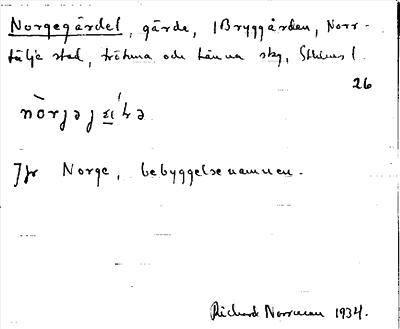 Norgegärdet, gärde, i Bryggården, Norr-
tälje stad, Frötuna och Länna skg, Sthlms l.
26
Jfr Norge, bebyggelsenamnen.
Richard Norrman 1934.